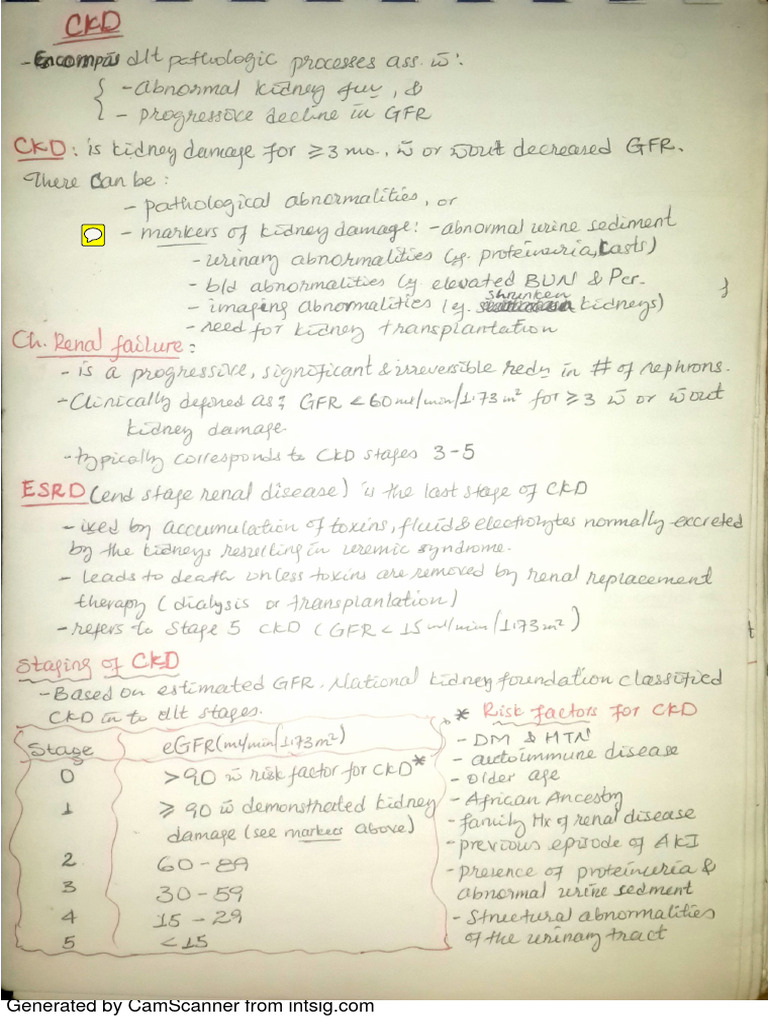 CKD
- Encompass d/t pathologic processes ass. w̄ :
- abnormal kidney fun, &
- progressive decline in GFR
CKD : is kidney damage for ≥3 mo., w̄ or w̄out decreased GFR.
There can be :
- pathological abnormalities, or
- markers of kidney damage: - abnormal urine sediment
- urinary abnormalities (eg. proteinuria, casts)
- bld abnormalities (eg elevated BUN & Pcr.
- imaging abnormalities (eg. shrunken kidneys)
- need for kidney transplantation
Ch. Renal failure :
- is a progressive, significant & irreversible redn in # of nephrons.
- Clinically defined as; GFR < 60 ml/min/1.73 m² for ≥3 w̄ or w̄out
kidney damage.
- typically corresponds to CKD stages 3-5
ESRD (end stage renal disease) is the last stage of CKD
- ixed by accumulation of toxins, fluid & electrolytes normally excreted
by the kidneys resulting in uremic syndrome.
- leads to death unless toxins are removed by renal replacement
therapy (dialysis or transplantation)
- refers to Stage 5 CKD (GFR < 15 ml/min/1.73m²)
Staging of CKD
- Based on estimated GFR. National kidney foundation classified
CKD in to d/t stages.
Stage eGFR (ml/min/1.73m²)
0 >90 w̄ risk factor for CKD*
1 ≥ 90 w̄ demonstrated kidney
damage (see markers above)
2 60 - 89
3 30 - 59
4 15 - 29
5 < 15
* Risk factors for CKD
- DM & HTN
- autoimmune disease
- older age
- African Ancestry
- family Hx of renal disease
- previous episode of AKI
- presence of proteinuria &
abnormal urine sedment
- Structural abnormalities
of the urinary tract
Generated by CamScanner from intsig.com